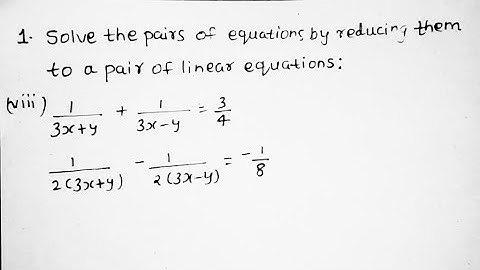 1. Solve the pairs of equations by reducing them
to a pair of linear equations:
(viii) 1/(3x+y) + 1/(3x-y) = 3/4
1/(2(3x+y)) - 1/(2(3x-y)) = -1/8